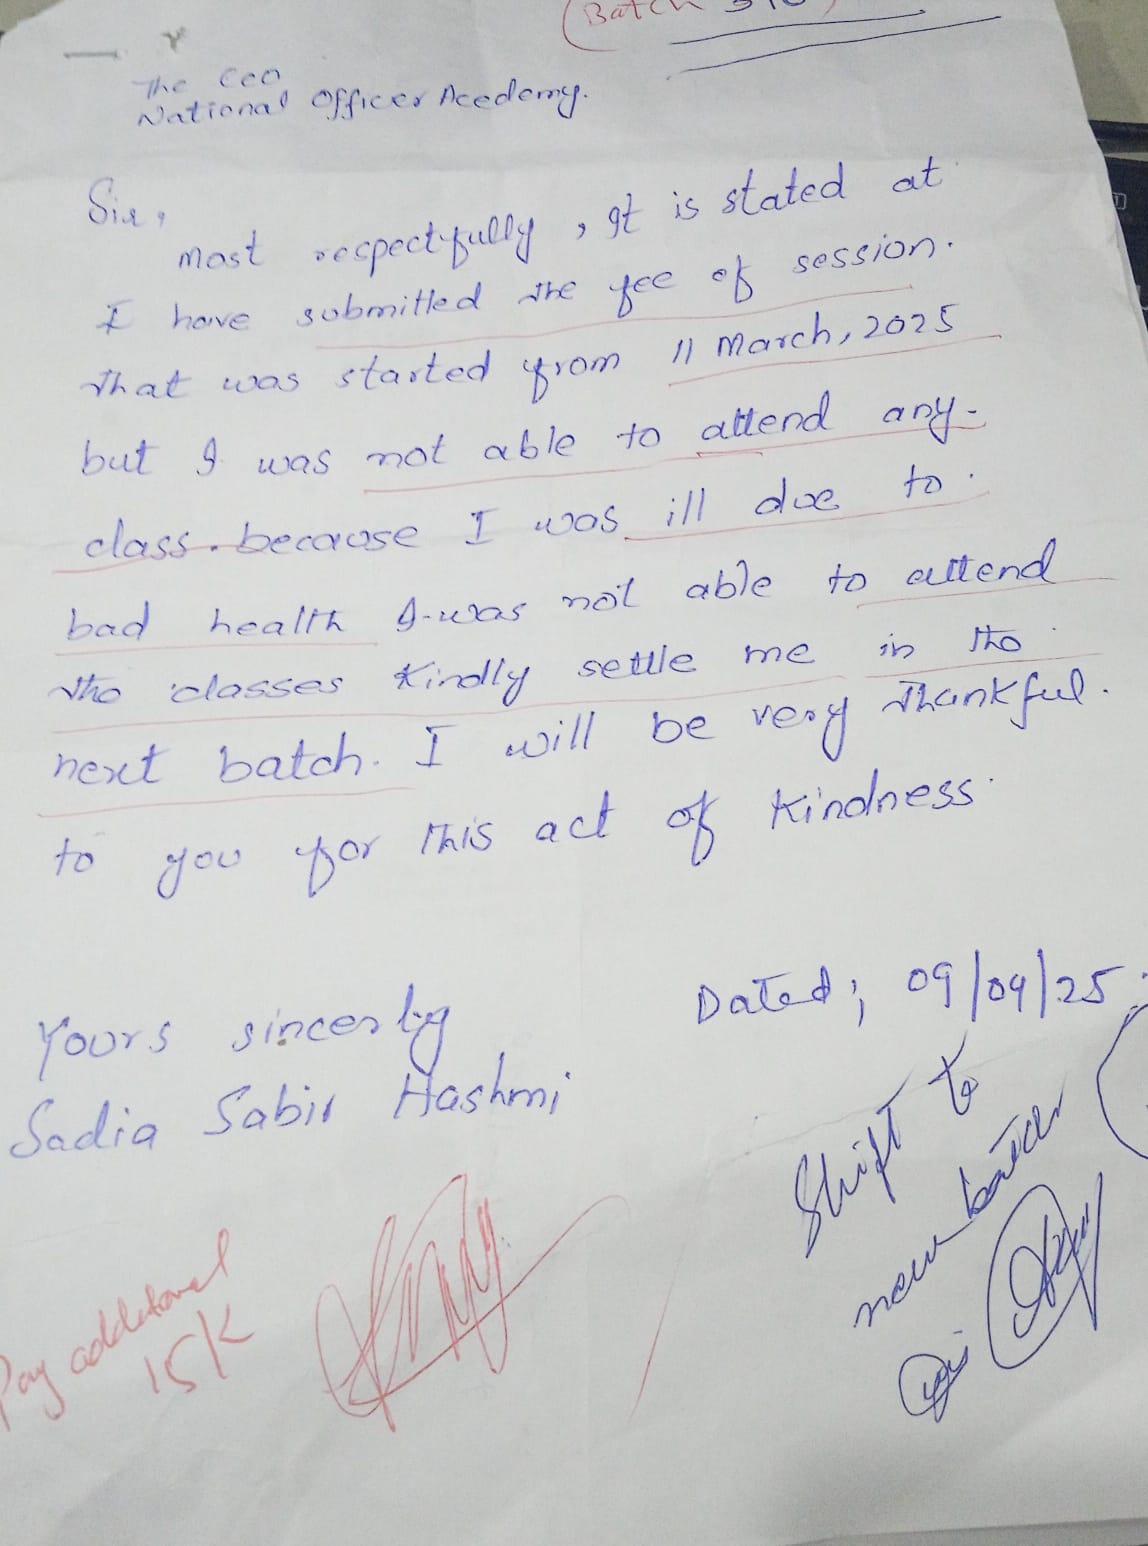 (Batch
The CEO
National Officer Acedemy.
Sir,
most respectfully, It is stated at
I have submitted the fee of session.
that was started from 11 March, 2025
but I was not able to attend any-
class. because I was ill due to.
bad health I was not able to attend
the classes Kindly settle me in the
next batch. I will be very thankful.
to you for this act of Kindness.
Dated; 09/04/25
Yours sincerly
Sadia Sabir Hashmi
Shift to
new batch
Pay additional
15K